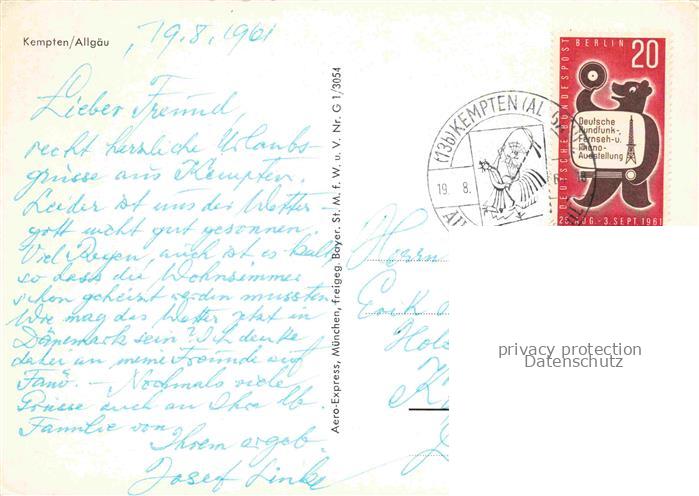 Kempten/Allgäu
19.8.1961
Lieber Freund,
recht herzliche Urlaubs-
grüsse aus Kempten.
Leider ist uns der Wetter-
gott nicht gut gesonnen.
Viel Regen, auch ist es kalt
so dass die Wohnzimmer
schon geheizt werden mussten
Wie mag das Wetter jetzt in
Dänemark sein? Ich denke
dabei an meine Freunde auf
Fanö. – Nochmals viele
Grüsse auch an Ihre lb.
Familie von
Ihrem ergeb.
Josef Linke
Aero-Express, München, freigeg. Bayer. St. M. f. W. u. V. Nr. G 1/3054
(13b) KEMPTEN (AL
19. 8.
DEUTSCHE BUNDESPOST BERLIN
20
Deutsche
Rundfunk-
Fernseh-u.
Phono-
Ausstellung
25. AUG. - 3. SEPT. 1961
Herrn
Erik
privacy protection
Datenschutz